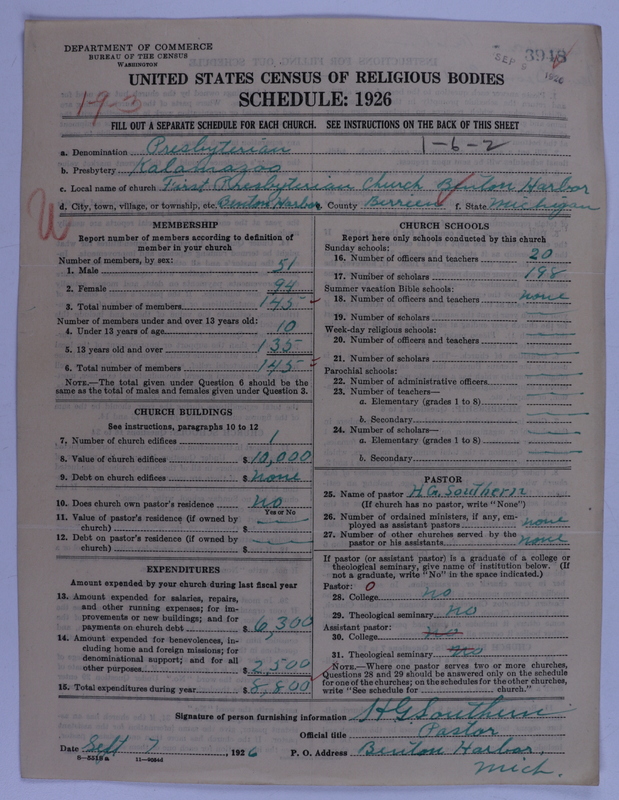 DEPARTMENT OF COMMERCE
BUREAU OF THE CENSUS
WASHINGTON
SEP 1926
3948
UNITED STATES CENSUS OF RELIGIOUS BODIES
SCHEDULE: 1926
19-3
FILL OUT A SEPARATE SCHEDULE FOR EACH CHURCH. SEE INSTRUCTIONS ON THE BACK OF THIS SHEET
1-6-2
a. Denomination Presbyterian
b. Presbytery Kalamazoo
c. Local name of church First Presbyterian Church Benton Harbor
d. City, town, village, or township, etc. Benton Harbor e. County Berrien f. State Michigan
W
MEMBERSHIP
Report number of members according to definition of member in your church
Number of members, by sex:
1. Male 51
2. Female 94
3. Total number of members 145
Number of members under and over 13 years old:
4. Under 13 years of age 10
5. 13 years old and over 135
6. Total number of members 145
NOTE.—The total given under Question 6 should be the same as the total of males and females given under Question 3.
CHURCH BUILDINGS
See instructions, paragraphs 10 to 12
7. Number of church edifices 1
8. Value of church edifices $10,000
9. Debt on church edifices $none
10. Does church own pastor's residence no
Yes or No
11. Value of pastor's residence (if owned by church) $
12. Debt on pastor's residence (if owned by church) $
EXPENDITURES
Amount expended by your church during last fiscal year
13. Amount expended for salaries, repairs, and other running expenses; for improvements or new buildings; and for payments on church debt $6,300
14. Amount expended for benevolences, including home and foreign missions; for denominational support; and for all other purposes $2,500
15. Total expenditures during year $8,800
CHURCH SCHOOLS
Report here only schools conducted by this church
Sunday schools:
16. Number of officers and teachers 20
17. Number of scholars 198
Summer vacation Bible schools:
18. Number of officers and teachers none
19. Number of scholars
Week-day religious schools:
20. Number of officers and teachers
21. Number of scholars
Parochial schools:
22. Number of administrative officers
23. Number of teachers—
a. Elementary (grades 1 to 8)
b. Secondary
24. Number of scholars—
a. Elementary (grades 1 to 8)
b. Secondary
PASTOR
25. Name of pastor H.G. Southern
(If church has no pastor, write "None")
26. Number of ordained ministers, if any, employed as assistant pastors none
27. Number of other churches served by the pastor or his assistants none
If pastor (or assistant pastor) is a graduate of a college or theological seminary, give name of institution below. (If not a graduate, write "No" in the space indicated.)
Pastor: 0
28. College no
29. Theological seminary no
Assistant pastor:
30. College no
31. Theological seminary no
NOTE.—Where one pastor serves two or more churches, Questions 28 and 29 should be answered only on the schedule for one of the churches; on the schedules for the other churches, write "See schedule for church."
Signature of person furnishing information H G Southern
Official title Pastor
Date Sept 7, 1926 P. O. Address Benton Harbor,
Mich.